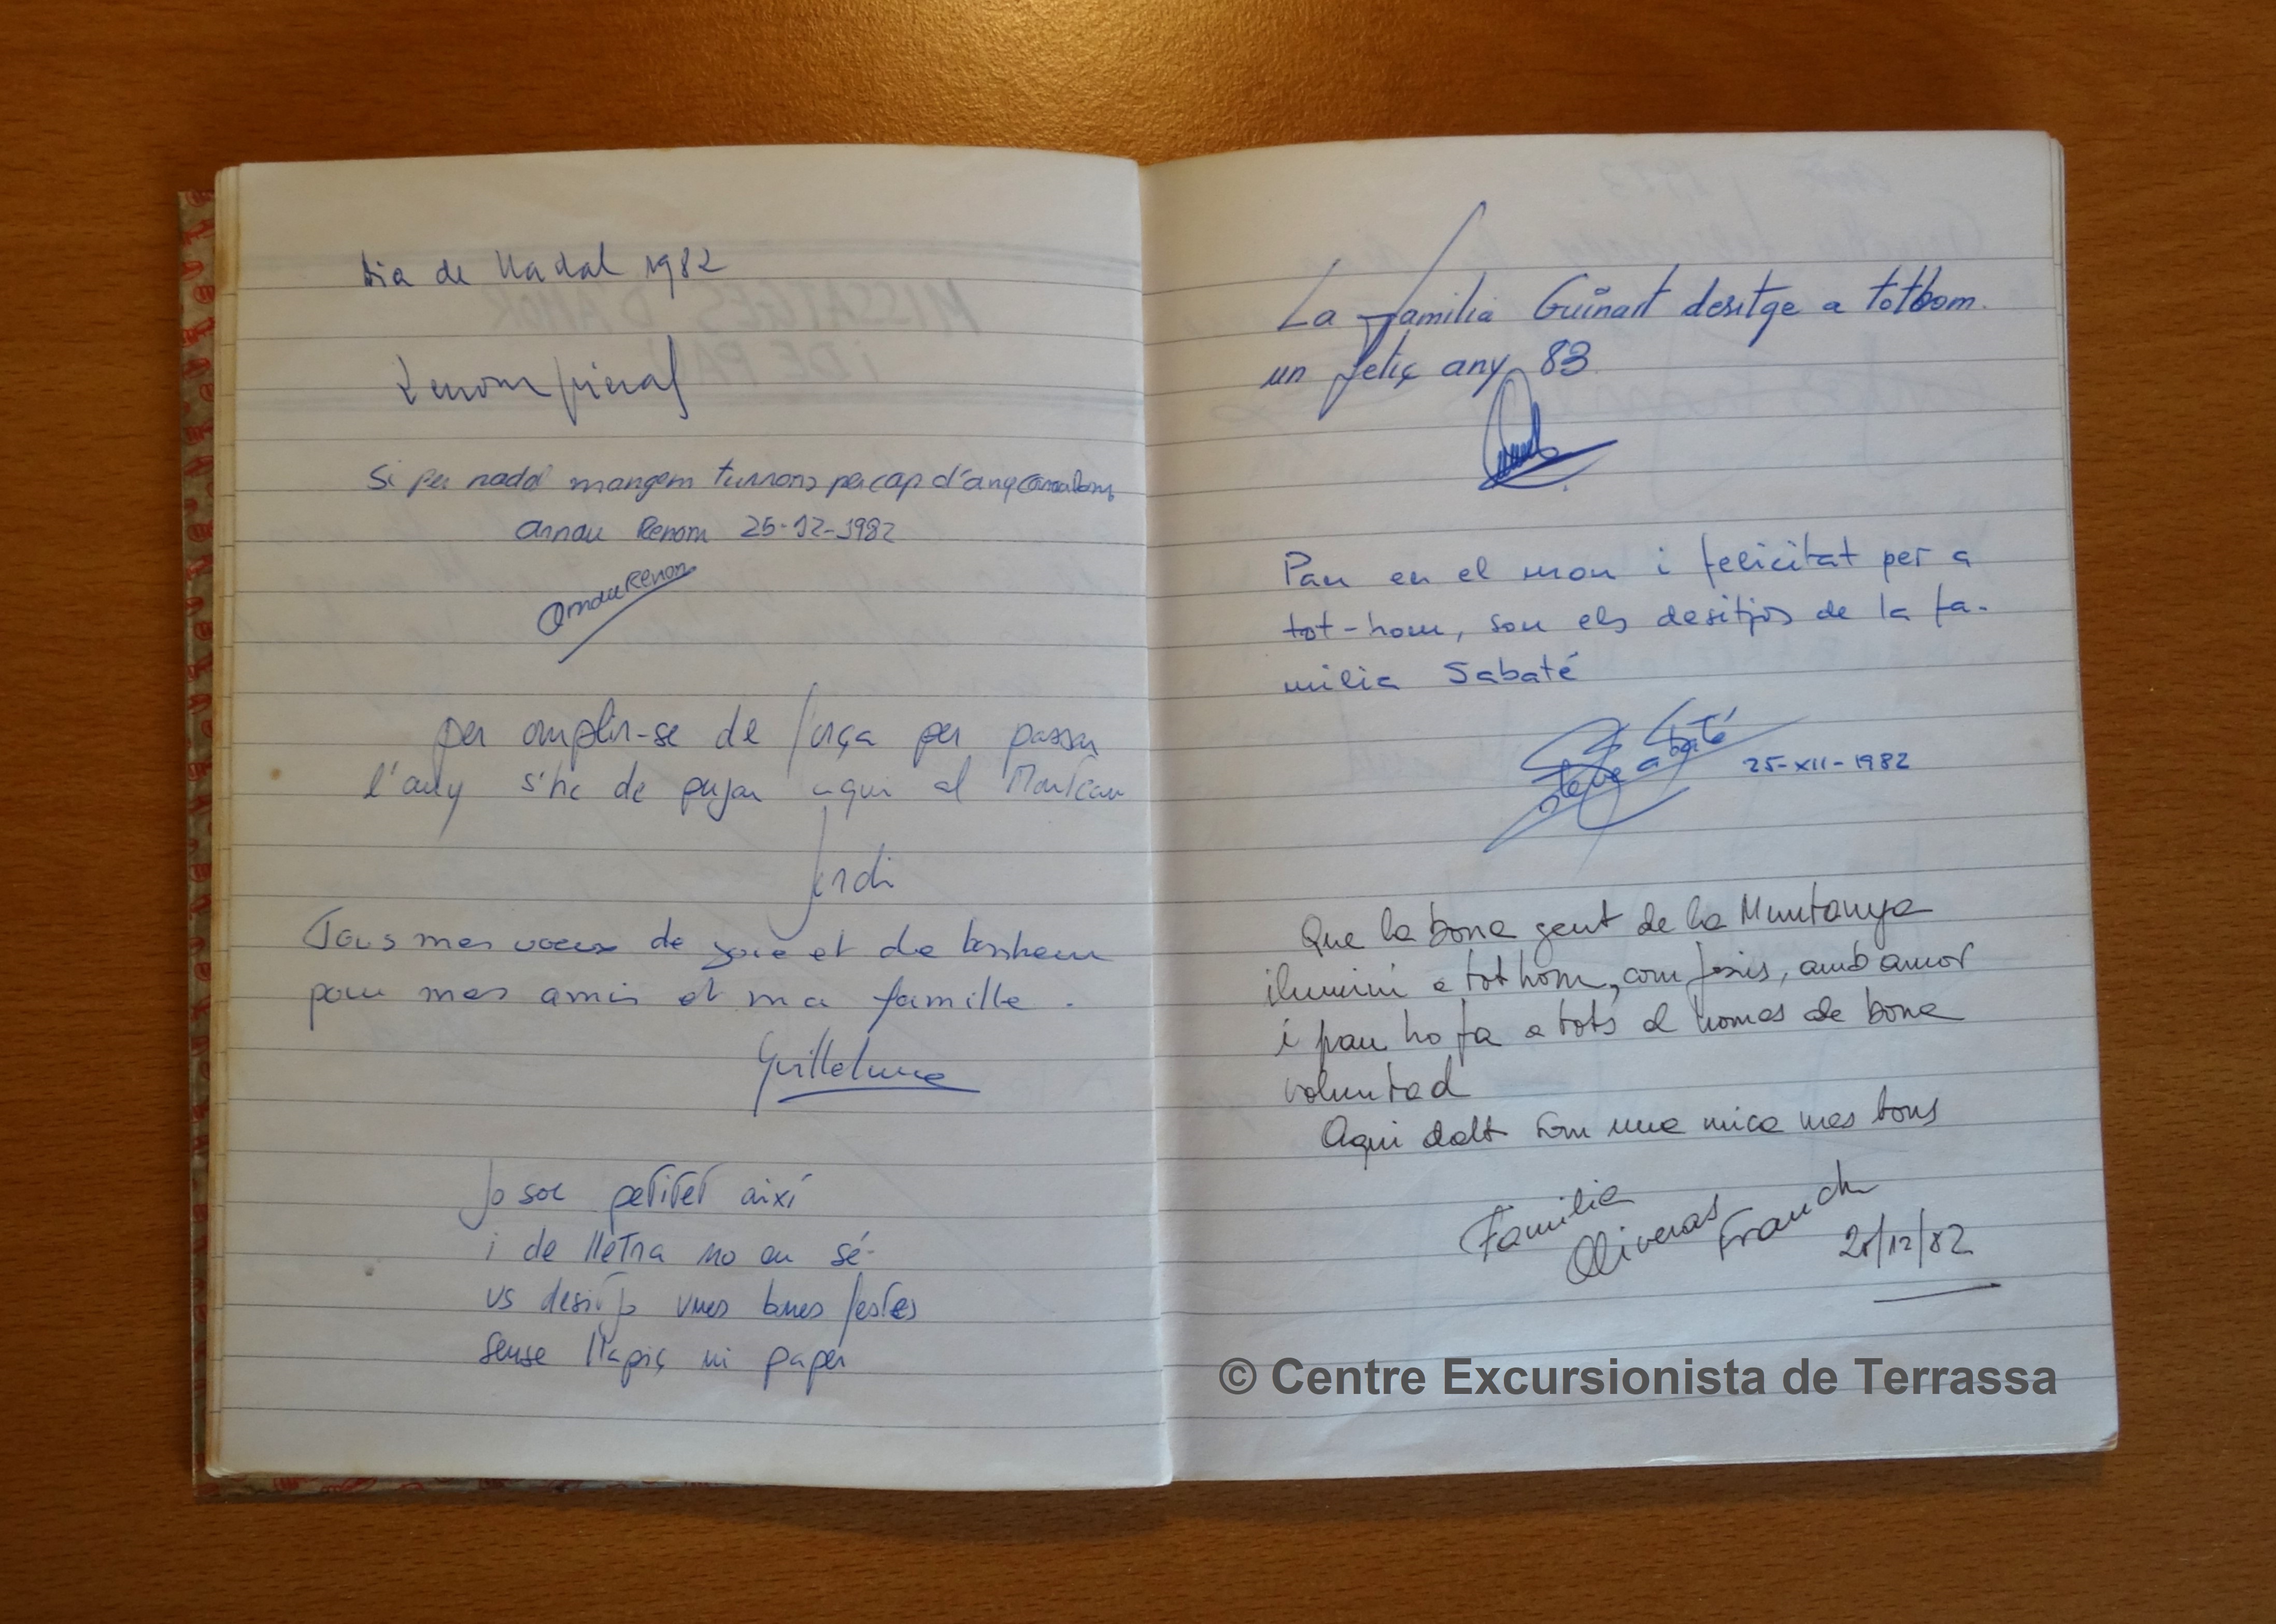 Dia de Nadal 1982
Renom
Si per nadal mangem turrons per cap d'any
Arnau Renom 25-12-1982
Arnau Renom
per omplir-se de força per passar
l'any s'ha de pujar aqui al Montcau
Jordi
Tous mes voeux de joie et de bonheur
pour mes amis et ma famille.
Guillelume
Jo soc petitet així
i de lletra no en sé
us desitjo unes bones festes
sense llapiç ni paper
La familia Guinart desitge a tothom.
un feliç any 83
Pau en el mon i felicitat per a
tot-hom, son els desitjos de la fa-
milia Sabaté
Sabaté
25-XII-1982
Que la bona gent de la Muntanya
ilumini a tothom, com Jesús, amb amor
i pau ho fa a tots el homes de bona
voluntad
Aqui dalt som una mica mes bons
Familia
Oliveras Franch
/12/82
© Centre Excursionista de Terrassa